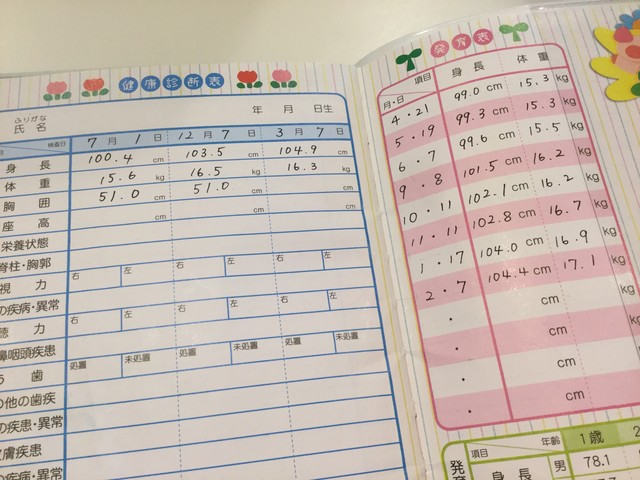 健康診断表
ふりがな
氏名 年 月 日生
検査日 7月1日 12月7日 3月7日
身長 100.4 cm 103.5 cm 104.9 cm
体重 15.6 kg 16.5 kg 16.3 kg
胸囲 51.0 cm 51.0 cm cm
座高 cm cm cm
栄養状態
脊柱・胸郭
視力 右 左 右 左 右 左
の疾病・異常
聴力 右 左 右 左 右 左
鼻咽頭疾患
う歯 処置 未処置 処置 未処置 処置 未処置
の他の歯疾
の疾患・異常
皮膚疾患
の疾病・異常
発育表
項目 月・日 身長 体重
4・21 99.0 cm 15.3 kg
5・19 99.3 cm 15.3 kg
6・7 99.6 cm 15.5 kg
9・8 101.5 cm 16.2 kg
10・11 102.1 cm 16.2 kg
11・11 102.8 cm 16.7 kg
1・17 104.0 cm 16.9 kg
2・7 104.4 cm 17.1 kg
・ cm kg
・ cm
・ cm
・ cm
発育 項目 年齢 1歳 2
身長 男 78.1